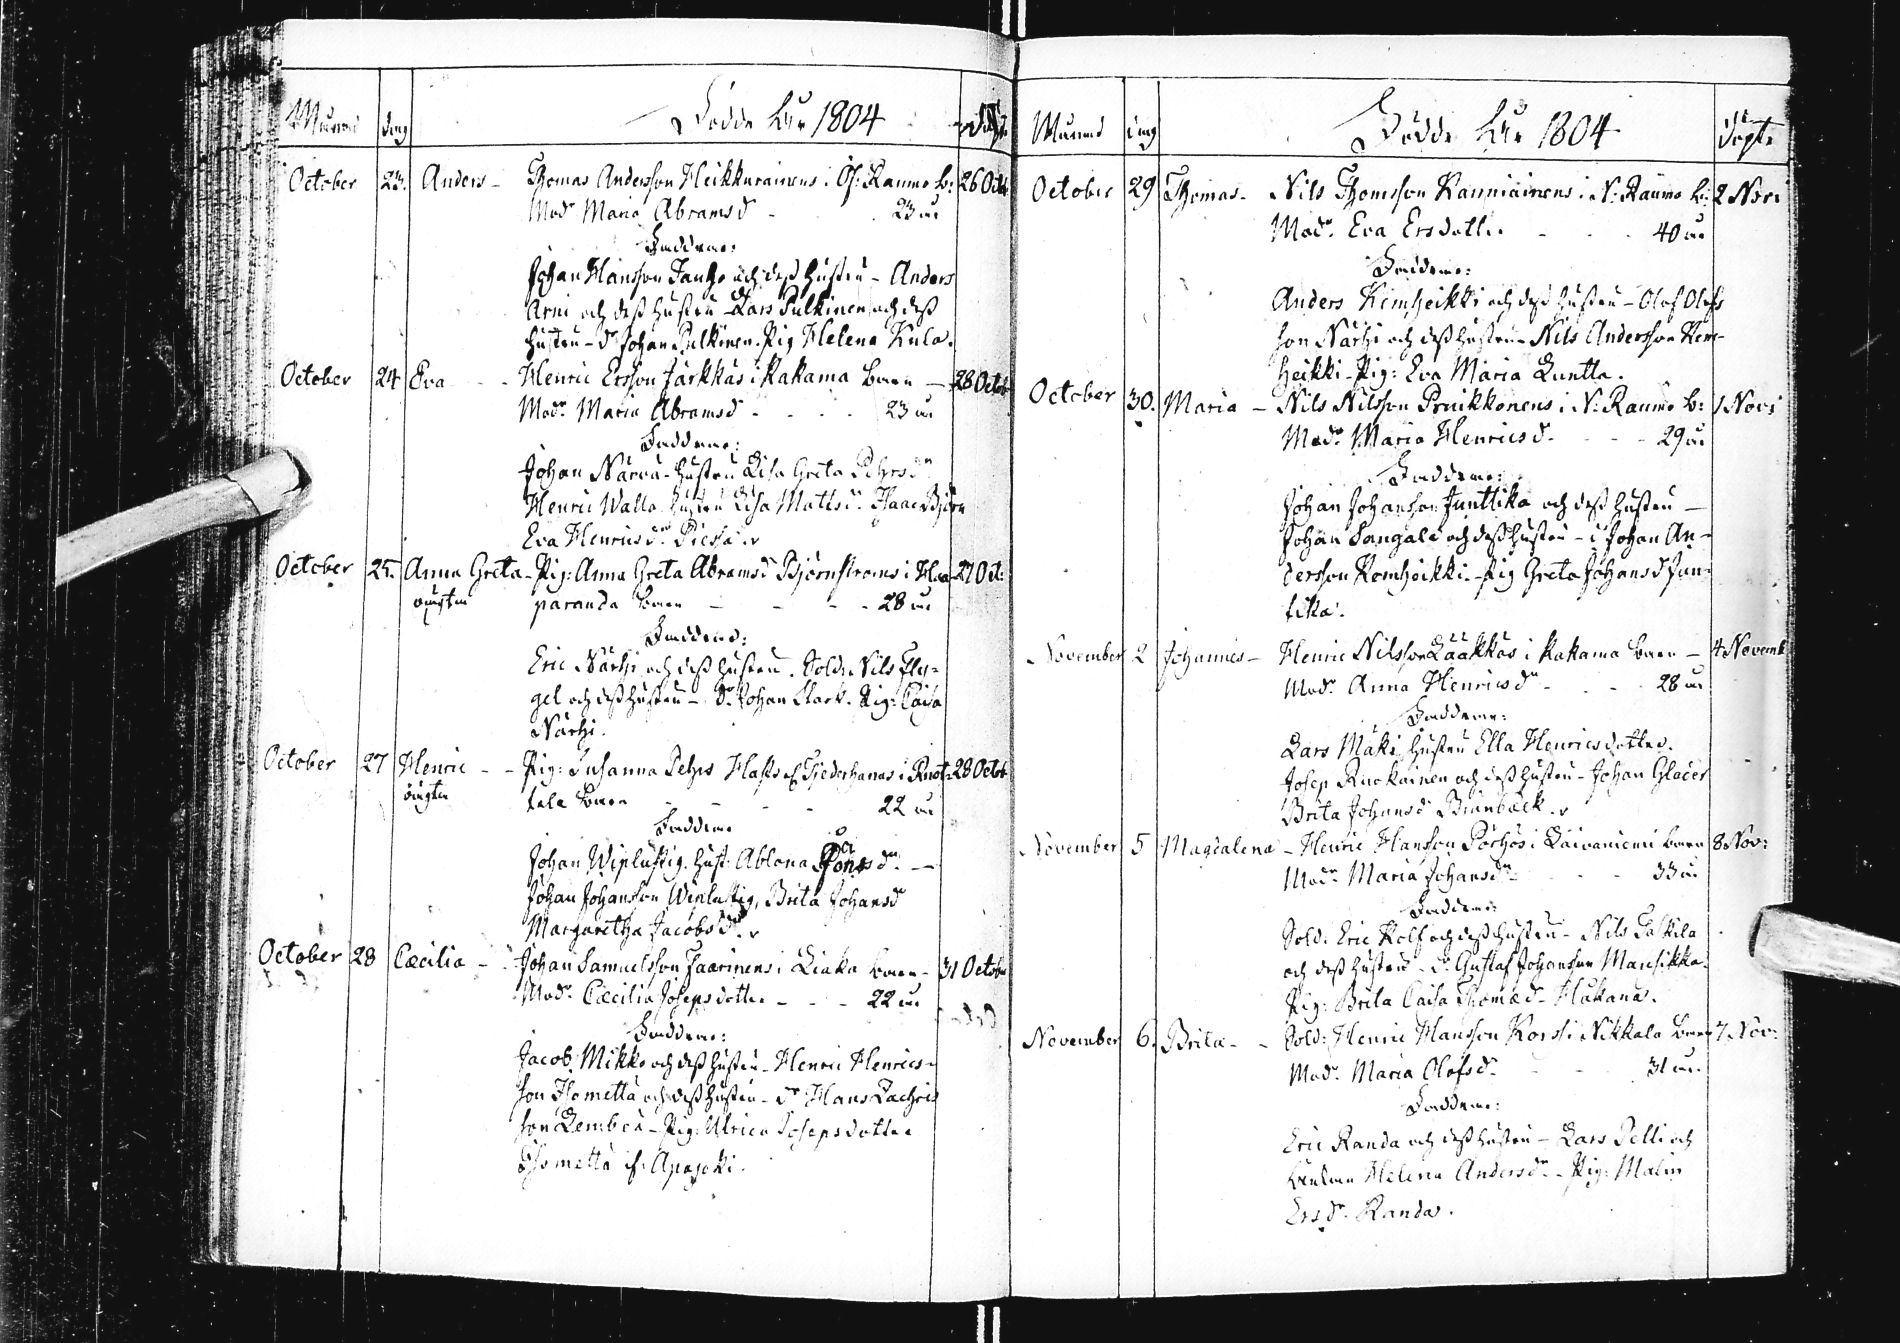 Månad dag Födde År 1804 döpte
October 23. Anders - Thomas Andersson Heikkurainens i Öf: Raumo b: 26 Octo
Mod: Maria Abramsd - - - 23 år
Faddrar:
Johan Hansson Tauho och dess hustru - Anders
Arni och dess hustru - Lars Pulkinen och dess
hustru - dr Johan Pulkinen. Pig Helena Kula.
October 24 Eva - - - Henric Ersson Järkkäs i Kakama born - 28 Octob
Mod: Maria Abramsd - - - 23 år
Faddrar:
Johan Närvä - hustru Lisa Greta Pehrsdr
Henric Walla hustru Lisa Mattsd: Isaac Björn
Eva Henricsdr Piessa.
October 25. Anna Greta - Pig: Anna Greta Abramsd Björnströms i Haa- 27 Oct:
oägta paranda born - - - 28 år
Faddrar:
Eric Närhi och dess hustru. Sold: Nils Fly-
gel och dess hustru - Dr Johan Stark. Pig: Caisa
Närhi.
October 27 Henric - - Pig: Susanna Pehrs i 28 Octob
oägta born - - - 22 år
Faddrar
Johan Wiplustig. Hust: Ablona dr -
Johan Johansson Wiplustig, Brita Johansd
Margaretha Jacobsdr
October 28 Cæcilia - - Johan Samuelsson Jaarinens i Liaka born - 31 Octobr
Mod: Cæcilia Josepsdotter - - - 22 år
Faddrar:
Jacob Mikko och dess hustru - Henric Henrics-
son Thometta och dess hustru - dr Hans Zachris
son Lembea - Pig: Ulrica Josepsdotter
Thometta i Apajoki.
Månad dag Födde År 1804 döpte
October 29 Thomas - Nils Thomsson Kanniainens i N: Raumo b: 2 Nov:
Mod: Eva Ersdotter - - - 40 år
Faddrar:
Anders Kemheikki och dess hustru - Olof Olofs
son Närhi och dess hustru - Nils Andersson Kem-
heikki - Pig: Eva Maria Luntta.
October 30. Maria - Nils Nilsson Pruikkonens i N: Raumo b: 1 Nov:
Mod: Maria Henricsd - - - 29 år
Faddrar:
Johan Johansson Junttika och dess hustru -
Johan Sangala och dess hustru - dr Johan An-
dersson Kemheikki. - Pig Greta Johansd Jun-
tika.
November 2 Johannes - Henric Nilsson Lääkkös i Kakama born - 4 Novemb
Mod: Anna Henricsdr - - - 28 år
Faddrar:
Lars Mäki hustru Ella Henricsdotter.
Josep Ruokainen och dess hustru - Johan Glacer
Brita Johansd Biünbäck.
November 5 Magdalena - Henric Hansson Pörhös i Laivaniemi born 8 Nov:
Mod: Maria Johansdr - - - 33 år
Faddrar:
Sold: Eric Rolf och dess hustru - Nils Taskila
och dess hustru - dr: Gustaf Johansson Mansikka.
Pig: Brita Caisa Thomæd - Hakana.
November 6. Brita - - Sold: Henric Hansson Kors i Nikkala born 7. Nov:
Mod: Maria Olofsdr - - - 31 år.
Faddrar:
Eric Randa och dess hustru - Lars Pelli och
Helena Andersdr - Pig: Malin
Ersdr Randa.